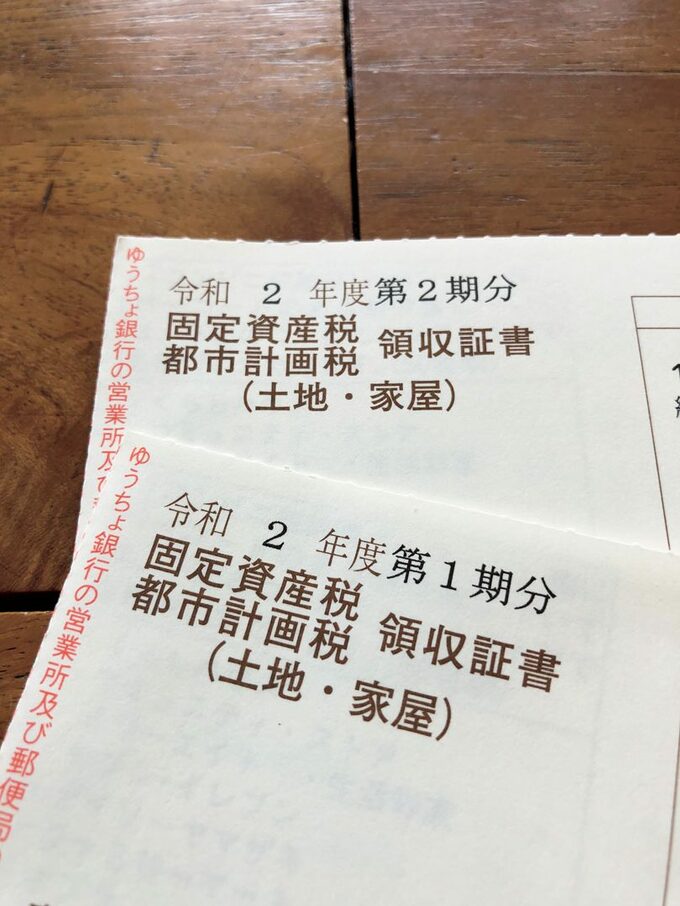 ゆうちょ銀行の営業所及び
令和 2 年度第2期分
固定資産税
都市計画税 領収証書
(土地・家屋)
ゆうちょ銀行の営業所及び郵便局
令和 2 年度第1期分
固定資産税
都市計画税 領収証書
(土地・家屋)